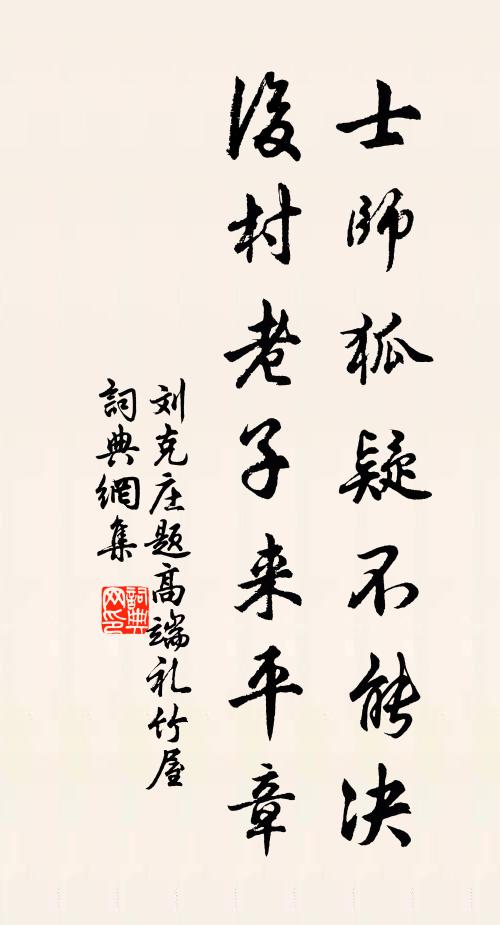 士師狐疑不能决
後村老子来平章
刘克庄题高端礼竹屋
詞典網集
詞典网印